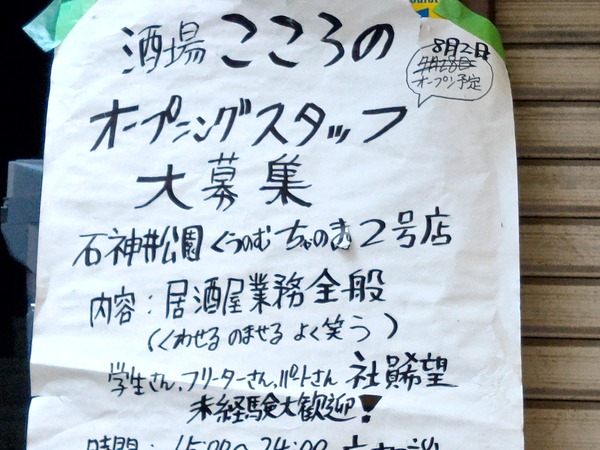 酒場こころの
8月2日
7月28日
オープン予定
オープニングスタッフ
大募集
石神井公園くうのむちゃのま2号店
内容:居酒屋業務全般
(くわせる のませる よく笑う)
学生さん、フリーターさん、パートさん 社員希望
未経験大歓迎!
時間:15:00~24:00